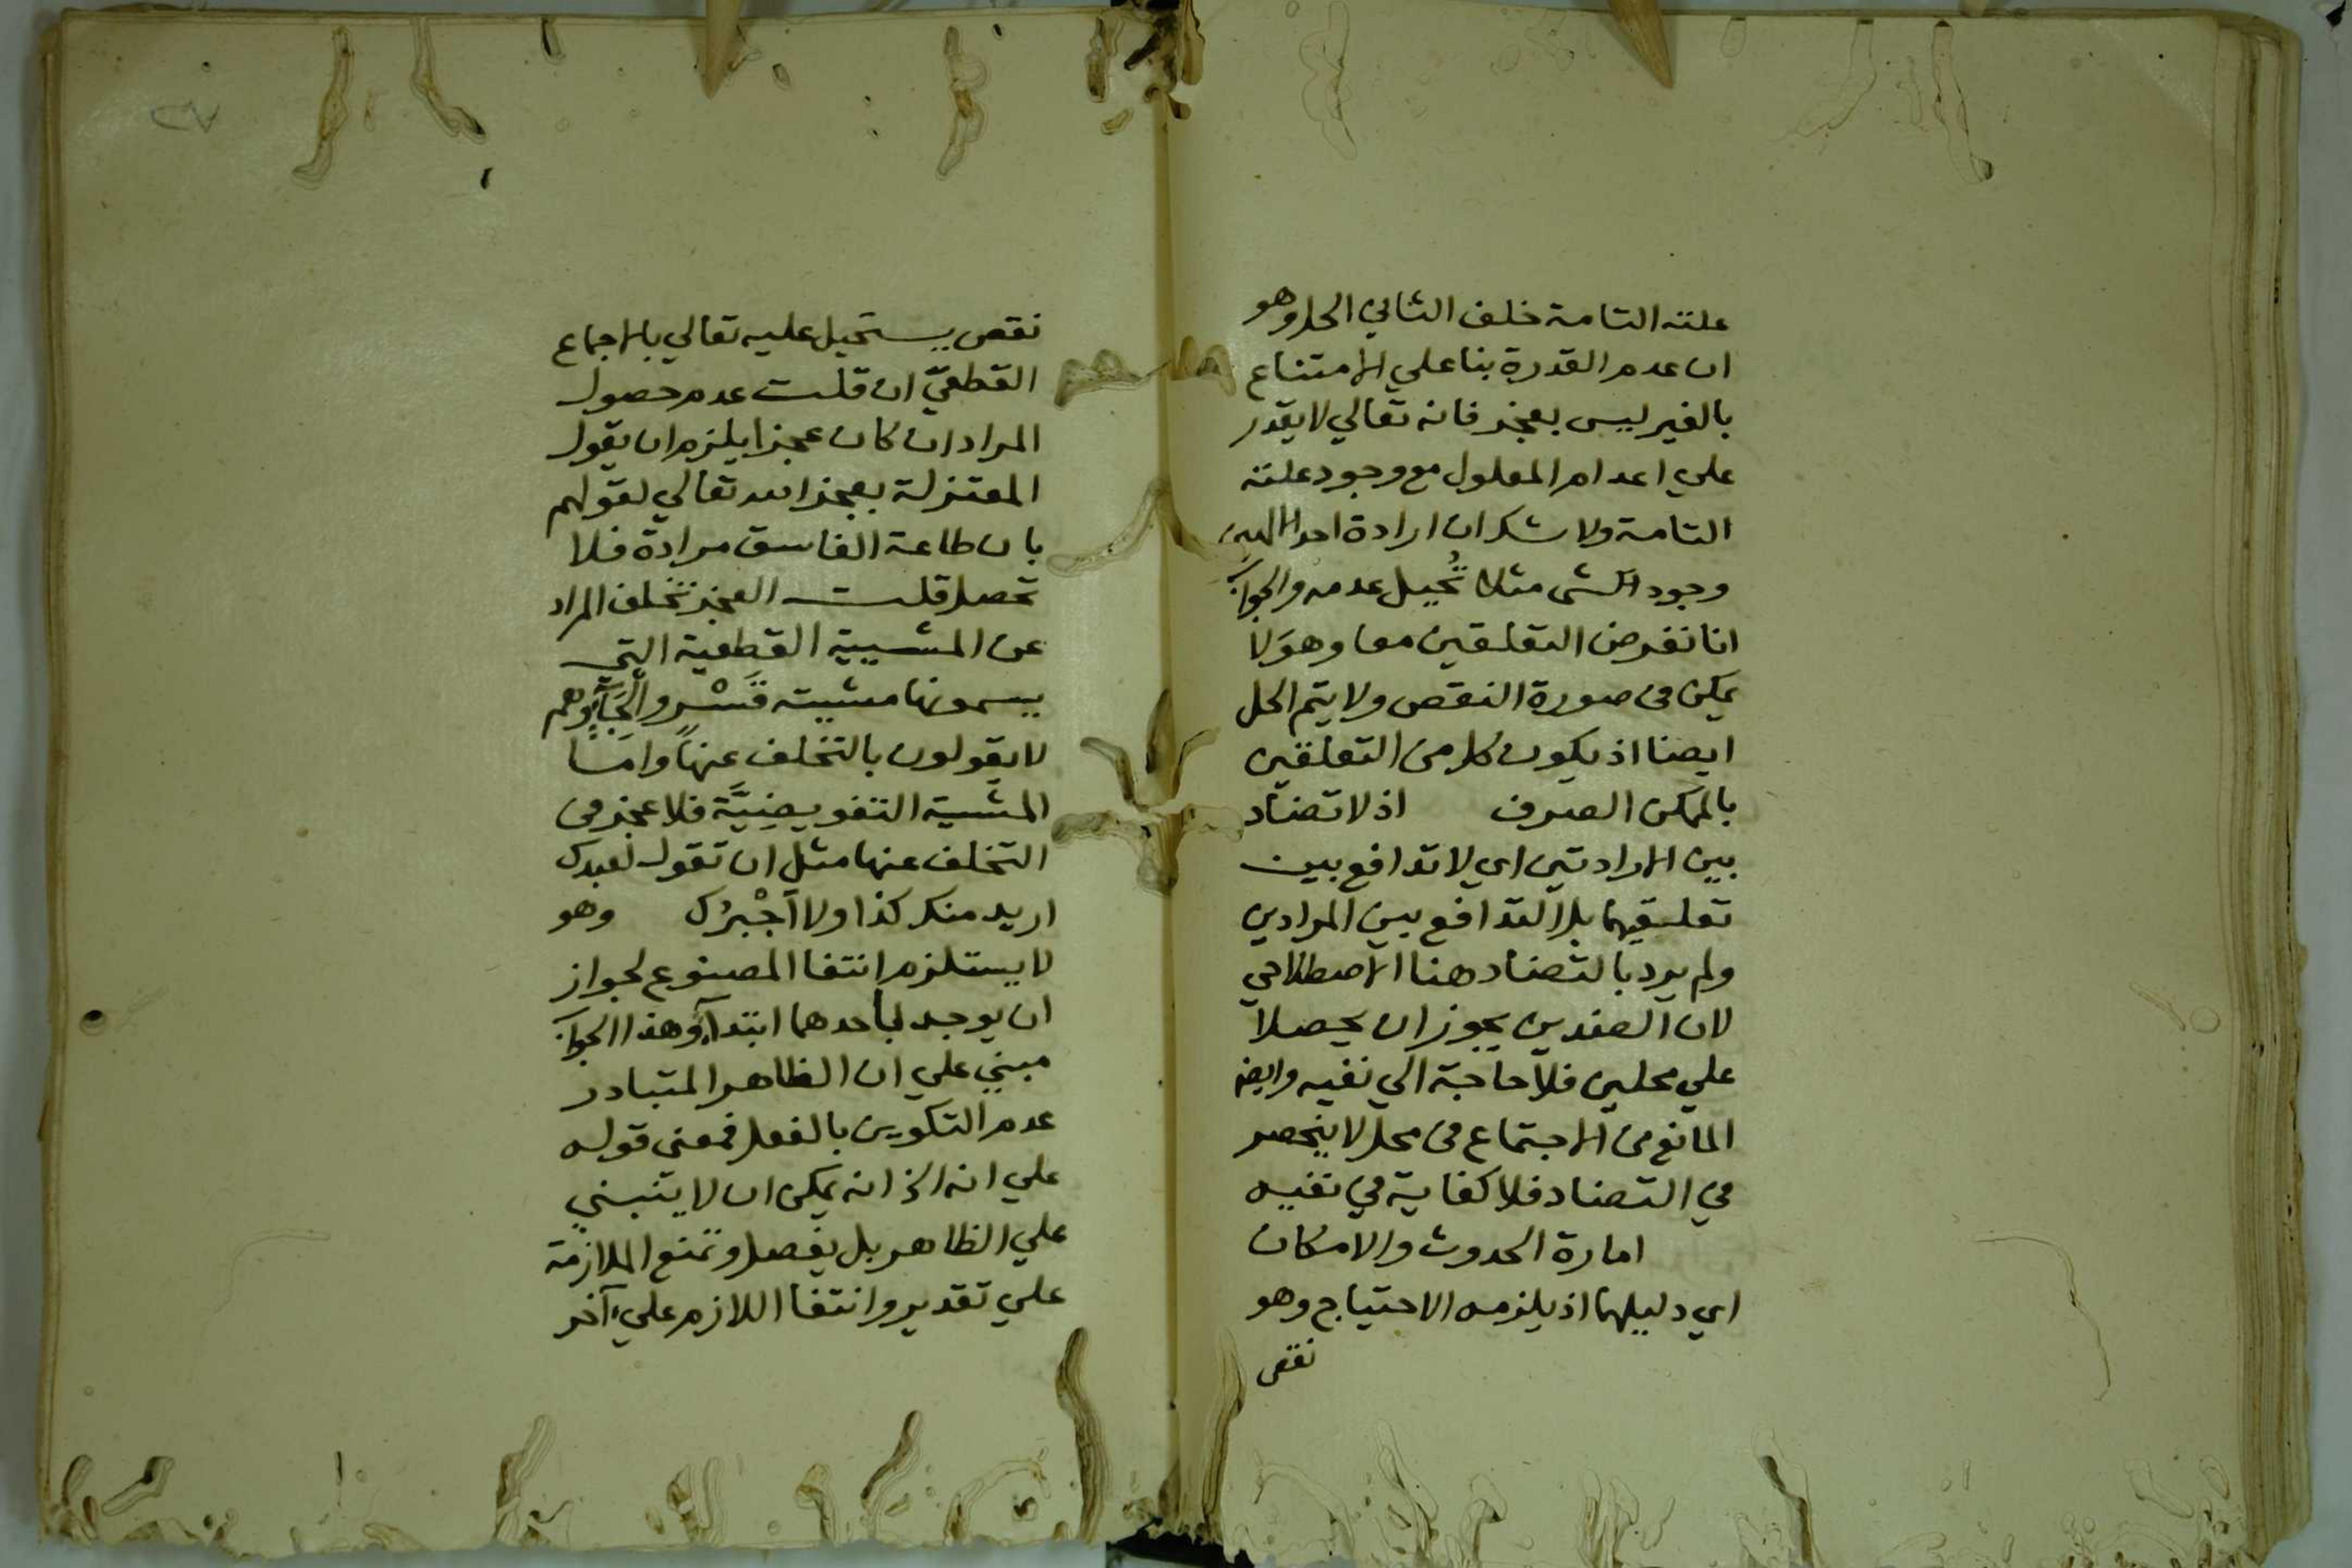 علته التامة خلف الثاني الحل وهو
ان عدم القدرة بنا علي الامتناع
بالغير ليس بعجز فانه تعالي لا يقدر
علي اعدام المعلول مع وجود علته
التامة ولا شك ان ارادة احد الالهين
وجود الشى مثلا تُحيل عدمه والجواب
انا نفرض التعلقين معا وهو لا
يمكن فى صورة النقص ولا يتم الحل
ايضا اذ يكون كل من التعلقين
بالممكن الصرف اذ لا تضاد
بين الارادتين اي لا تدافع بين
تعلقيهما بل التدافع بين المرادين
ولم يرد بالتضاد هنا الاصطلاحي
لان الضدين يجوز ان يحصلا
علي محلين فلا حاجة الي نفيه وايضا
المانع من الاجتماع فى محل لا ينحصر
في التضاد فلا كفاية في نفيه
امارة الحدوث والامكان
اي دليلهما اذ يلزمه الاحتياج وهو
نقص
٢٧
نقص يستحيل عليه تعالي بالاجماع
القطعيّ ان قلت عدم حصول
المراد ان كان عجزا يلزم ان يقول
المعتزلة بعجز الله تعالي لقولهم
بان طاعة الفاسق مرادة فلا
تحصل قلت العجز تخلف المراد
عن المشيية القطعية التي
يسمونها مشيته قَسْرٍ والجآءٍ وهم
لا يقولون بالتخلف عنها واما
المشية التفويضِيَّة فلا عجز فى
التخلف عنها مثل ان تقول لعبدك
اريد منك كذا ولا اَجْبرُك وهو
لا يستلزم انتفا المصنوع لجواز
ان يوجد بأحدهما ابتداءً وهذا الجواب
مبني علي ان الظاهر المتبادر
عدم التكوين بالفعل فمعنى قوله
علي انه الخ انه يمكن ان لا يتبني
علي الظاهر بل يفصل وتمنع الملازمة
علي تقدير وانتفا اللازم علي آخر